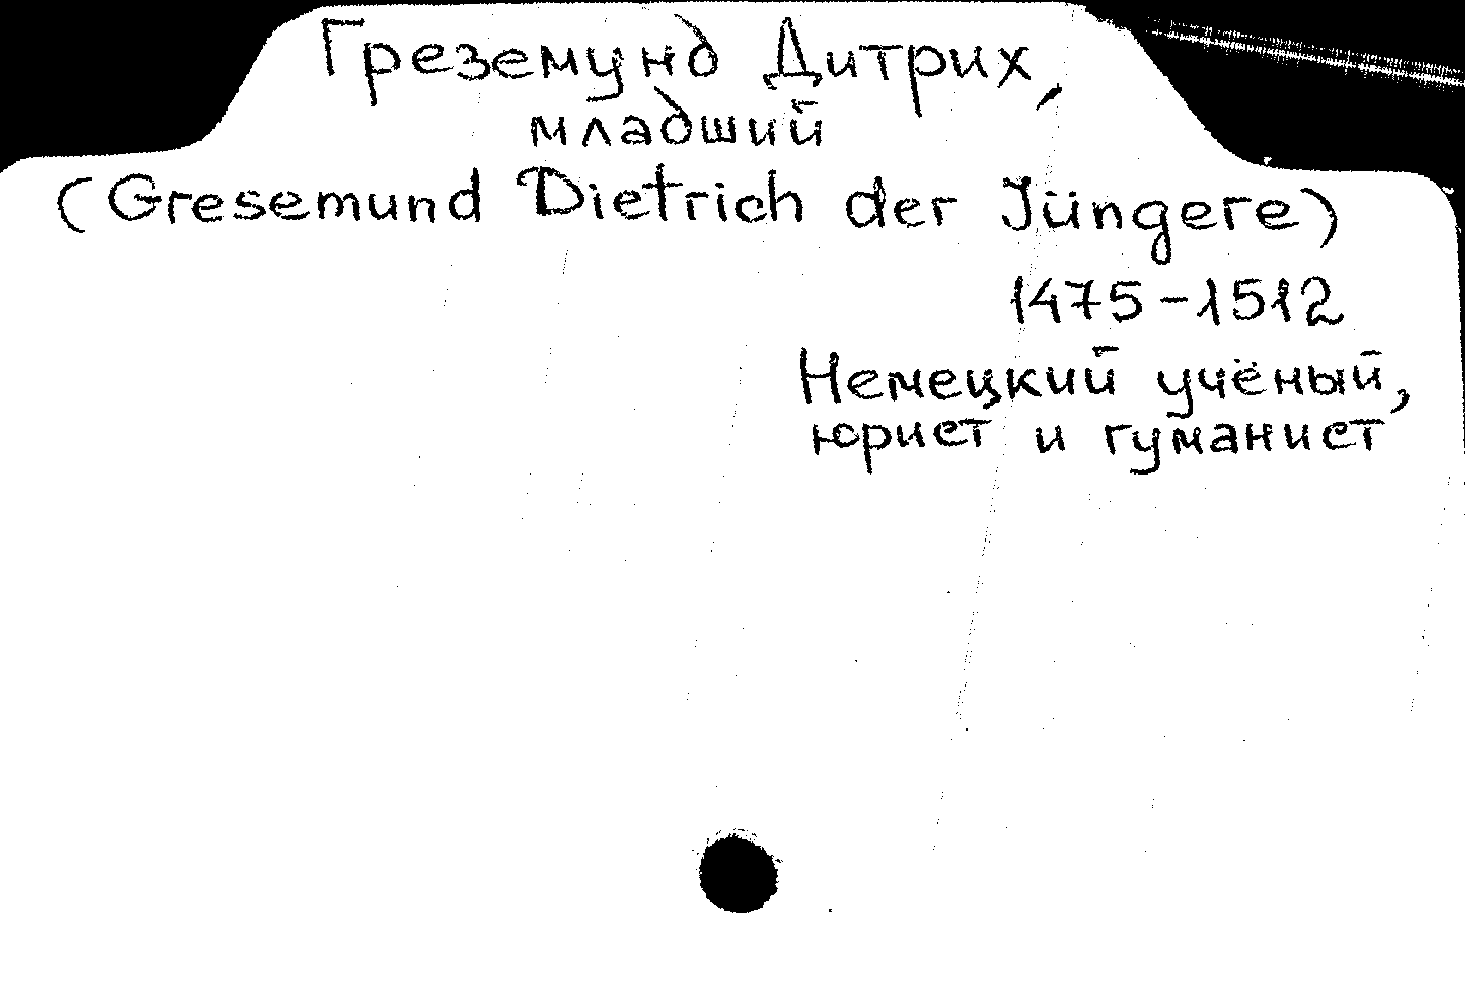 Греземунд Дитрих,
младший
(Gresemund Dietrich der Jüngere)
1475-1512
Немецкий учёный,
юрист и гуманист